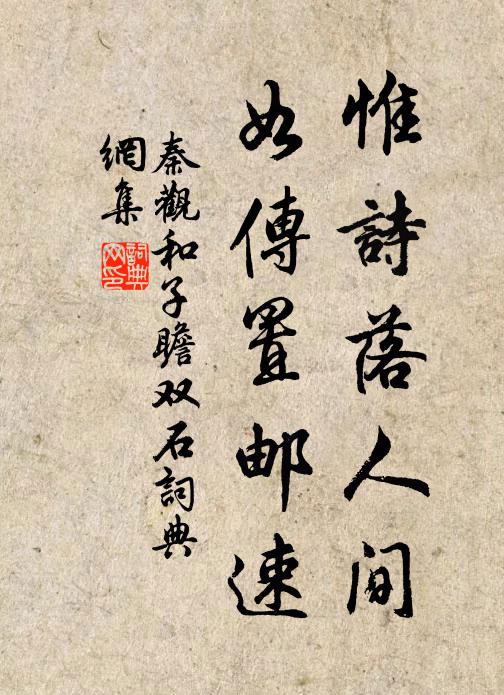 惟詩落人间
如傳置邮速
秦觀和子瞻双石詞典
網集
詞典网印